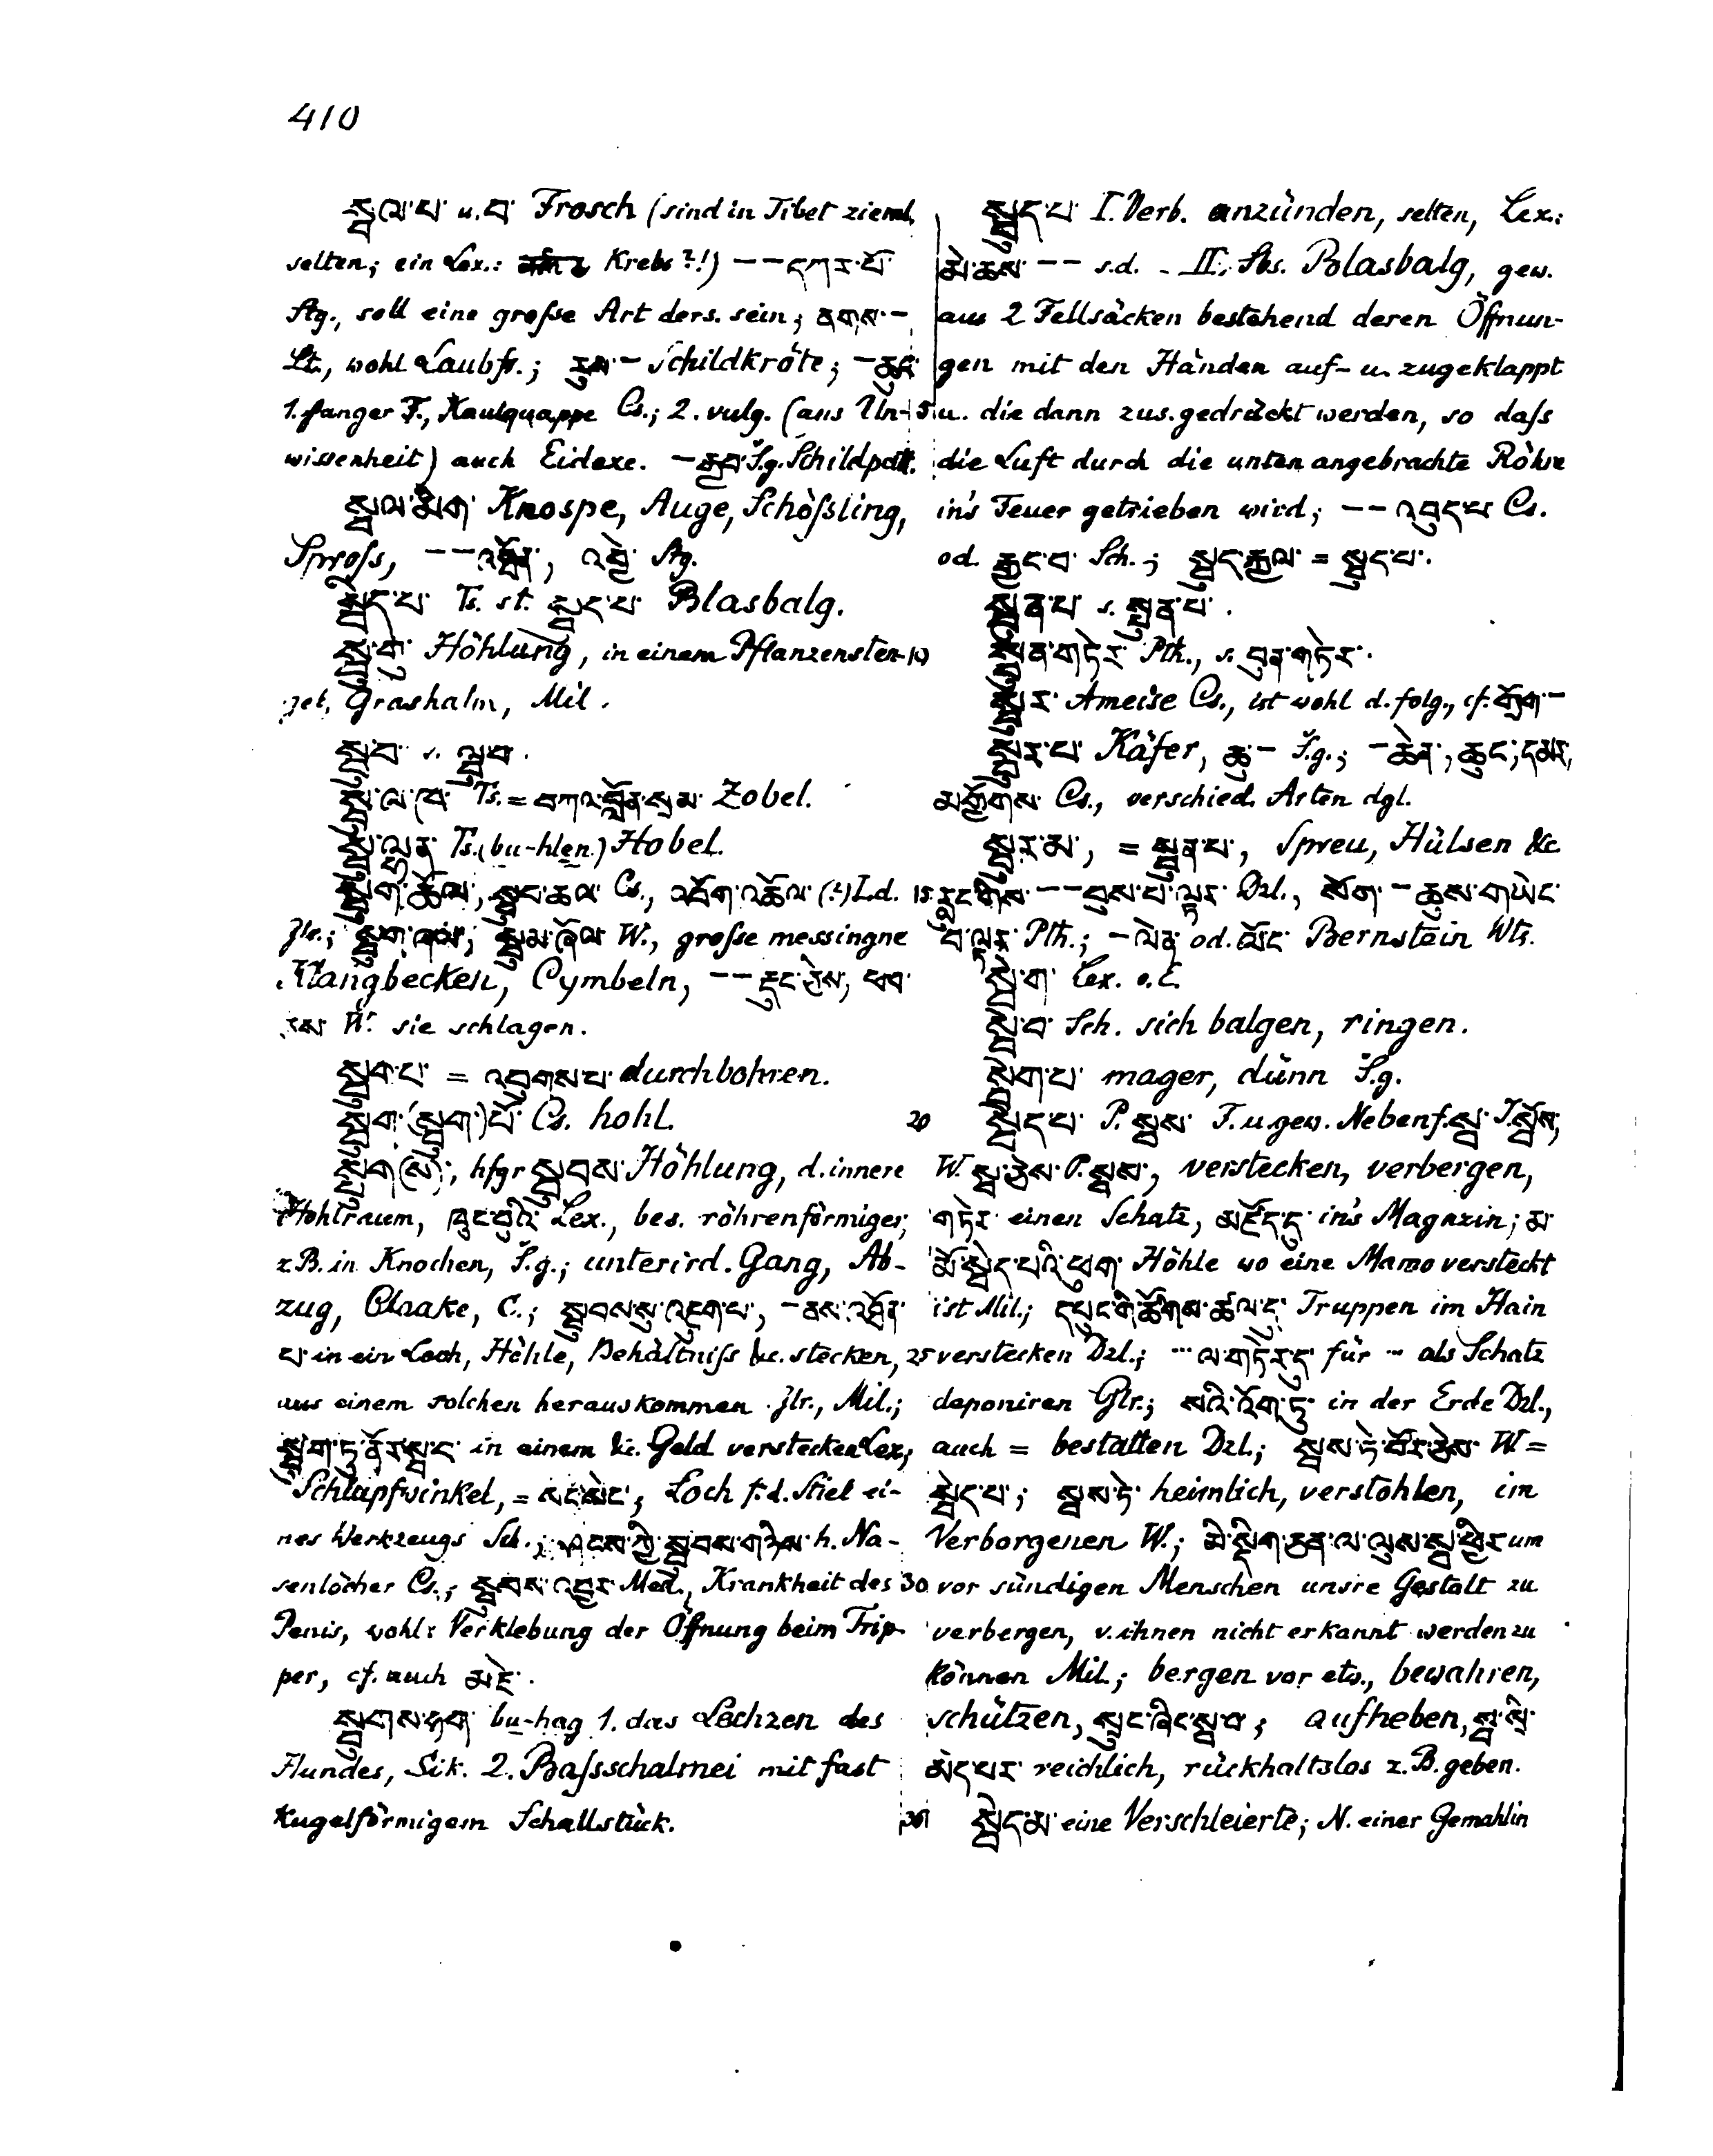 410
སྦལ་པ་ u. བ་ Frosch (sind in Tibet zieml.
selten; ein Lex.: Krebs?!) -- དཀར་པོ་
Stg., soll eine große Art ders. sein; ནགས་ -
Lt., wohl Laubfr.; རུས་ - Schildkröte; - ཆུང་
1. junger F., Kaulquappe Cs.; 2. vulg. (aus Un-
wissenheit) auch Eidexe. - རྒྱབ་ S̆.g. Schildpatt.
སྦལ་མིག་ Knospe, Auge, Schößling,
Sproß, -- འབྱོན་, འབྱེ་ Stg.
སྦིད་པ་ Ts. st. སྦུད་པ་ Blasbalg.
སྦུ་གུ་ Höhlung, in einem Pflanzensten-
gel, Grashalm, Mil.
སྦུ་བ་ s. ལྦུ་བ་.
སྦུ་ལ་ཁ་ Ts. = Zobel.
Ts. (bu-hlen.) Hobel.
Cs., (?) Ld. 15
Glr.; W., große messingne
Klangbecken, Cymbeln, -- རྡུང་ཉེས་, ཕབ་
W. sie schlagen.
སྦུག་པ་ = འབུགས་པ་ durchbohren.
སྦུག་(སྦུག་)པོ་ Cs. hohl.
hfgr སྦུབས་ Höhlung, d. innere
Hohlraum, Lex., bes. röhrenförmiger;
z.B. in Knochen, S̆.g.; unterird. Gang, Ab-
zug, Cloake, C.; སྦུབས་སུ་འཇུག་པ་, - ནས་འབྱོན་
པ་ in ein Loch, Höhle, Behältniß &c. stecken,
aus einem solchen herauskommen Glr., Mil.;
སྦུག་ཏུ་ནོར་སྦ་ in einem &c. Geld verstecken Lex;
Schlupfwinkel, = Loch f. d. Stiel ei-
nes Werkzeugs Sch.; ཤངས་ཀྱི་སྦུབས་གཉིས་ h. Na-
senlöcher Cs.; སྦུབས་འབྱར་ Med., Krankheit des
Penis, wohl: Verklebung der Öffnung beim Trip-
per, cf. auch མཇེ་.
bu-hag 1. das Lechzen des
Hundes, Sik. 2. Baßschalmei mit fast
kugelförmigem Schallstück.
སྦུད་པ་ I. Verb. anzünden, selten, Lex.:
མེ་ཆས་ -- s.d. - II. Sbs. Blasbalg, gew.
aus 2 Fellsäcken bestehend deren Öffnun-
gen mit den Händen auf- u. zugeklappt
5 u. die dann zus. gedrückt werden, so daß
die Luft durch die unten angebrachte Röhre
in's Feuer getrieben wird; -- འབུད་པ་ Cs.
od. རྐྱང་བ་ Sch.; སྦུད་རྒྱལ་ = སྦུད་པ་.
སྦུན་པ་ s. སྤུན་པ་.
10 སྦུན་གཏེར་ Pth., s. བུན་གཏེར་.
སྦུར་ Ameise Cs., ist wohl d. folg., cf. གྲོག་ -
སྦུར་པ་ Käfer, ཆུ་ - S̆.g.; - ཆེན་, ཆུང་, དམར་,
མགྱོགས་ Cs., verschied. Arten dgl.
སྦུར་མ་, = སྦུན་པ་, Spreu, Hülsen &c.
རླུང་གིས་ -- བུས་པ་ལྟར་ Dzl., སོག་ - ཆུས་གཡེང་
བ་ལྟར་ Pth.; - ལེན་ od. ལོང་ Bernstein Wts.
སྦེ་ག་ Lex. o. E.
སྦེ་བ་ Sch. sich balgen, ringen.
སྦེག་པ་ mager, dünn S̆.g.
20 སྦེད་པ་ P. སྦས་ F. u. gew. Nebenf. སྦ་ I. སྦོས་,
W. སྦ་ཅེས་ P. སྦས་, verstecken, verbergen,
གཏེར་ einen Schatz, མཛོད་དུ་ in's Magazin; མ་
མོ་སྦེད་པའི་ཕུག་ Höhle wo eine Mamo versteckt
ist Mil.; དཔུང་གི་ཚོགས་ཚལ་དུ་ Truppen im Hain
25 verstecken Dzl.; ··· ལ་གཏེར་དུ་ für ··· als Schatz
deponiren Glr.; སའི་འོག་ཏུ་ in der Erde Dzl.,
auch = bestatten Dzl.; སྦས་ཏེ་བོར་ཅེས་ W =
སྦེད་པ་; སྦས་ཏེ་ heimlich, verstohlen, im
Verborgenen W.; མི་སྡིག་ཅན་ལ་ལུས་སྦ་ཕྱིར་ um
30 vor sündigen Menschen unsre Gestalt zu
verbergen, v. ihnen nicht erkannt werden zu
können Mil.; bergen vor etw., bewahren,
schützen, སྲུང་ཞིང་སྦ་བ་; aufheben, སྦ་སྲི་
མེད་པར་ reichlich, rückhaltslos z.B. geben.
35 སྦེད་མ་ eine Verschleierte; N. einer Gemahlin